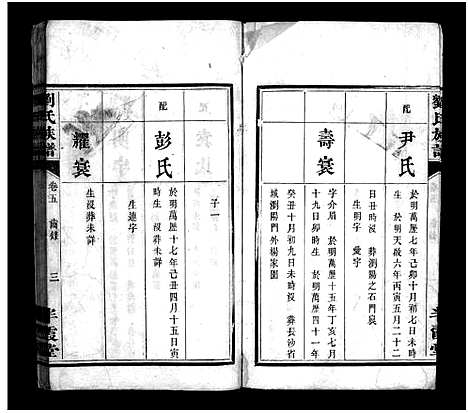 劉氏族譜
卷五
半霞堂
配
尹氏
於明萬歷七年己卯十月初七日未時
日丑時沒 葬瀏陽之石門裊
生明字 愛字
壽袞
字介眉 於明萬歷十五年丁亥七月
十九日卯時生 於明萬歷四十一年
癸丑十月初九日未時沒 葬長沙省
城瀏陽門外楊家園
子一
配
彭氏
於明萬歷十七年己丑四月十五日寅
時生 沒葬未詳
生連字
耀袞
生沒葬未詳
劉氏族譜
卷五 齒錄
三
半霞堂